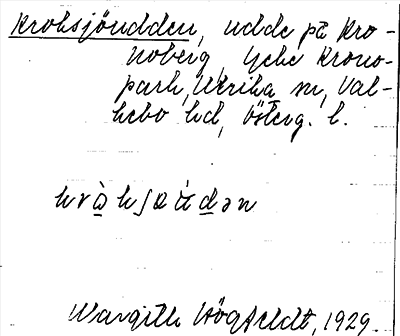 Kroksjöudden, udde på Kro-
noberg, Yche Krono-
park, Ulrika sn, Val-
kebo hd, Österg. l.
Margith Högfeldt, 1929.